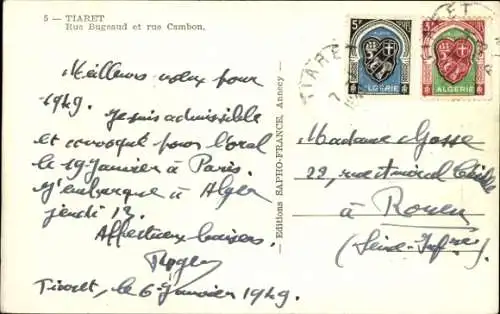 5 — TIARET
Rue Bugeaud et rue Cambon.
Meilleurs vœux pour
1949. Je suis admissible
et convoqué pour l'oral
le 19 Janvier à Paris.
J'embarque à Alger
jeudi 13.
Affectueux baisers.
Roger
Tiaret, le 6 Janvier 1949.
Editions SAPHO-FRANCE, Annecy
TIARET
ALGERIE
ALGERIE
Madame Gosse
22, rue
à Rouen
(Seine-Infre)